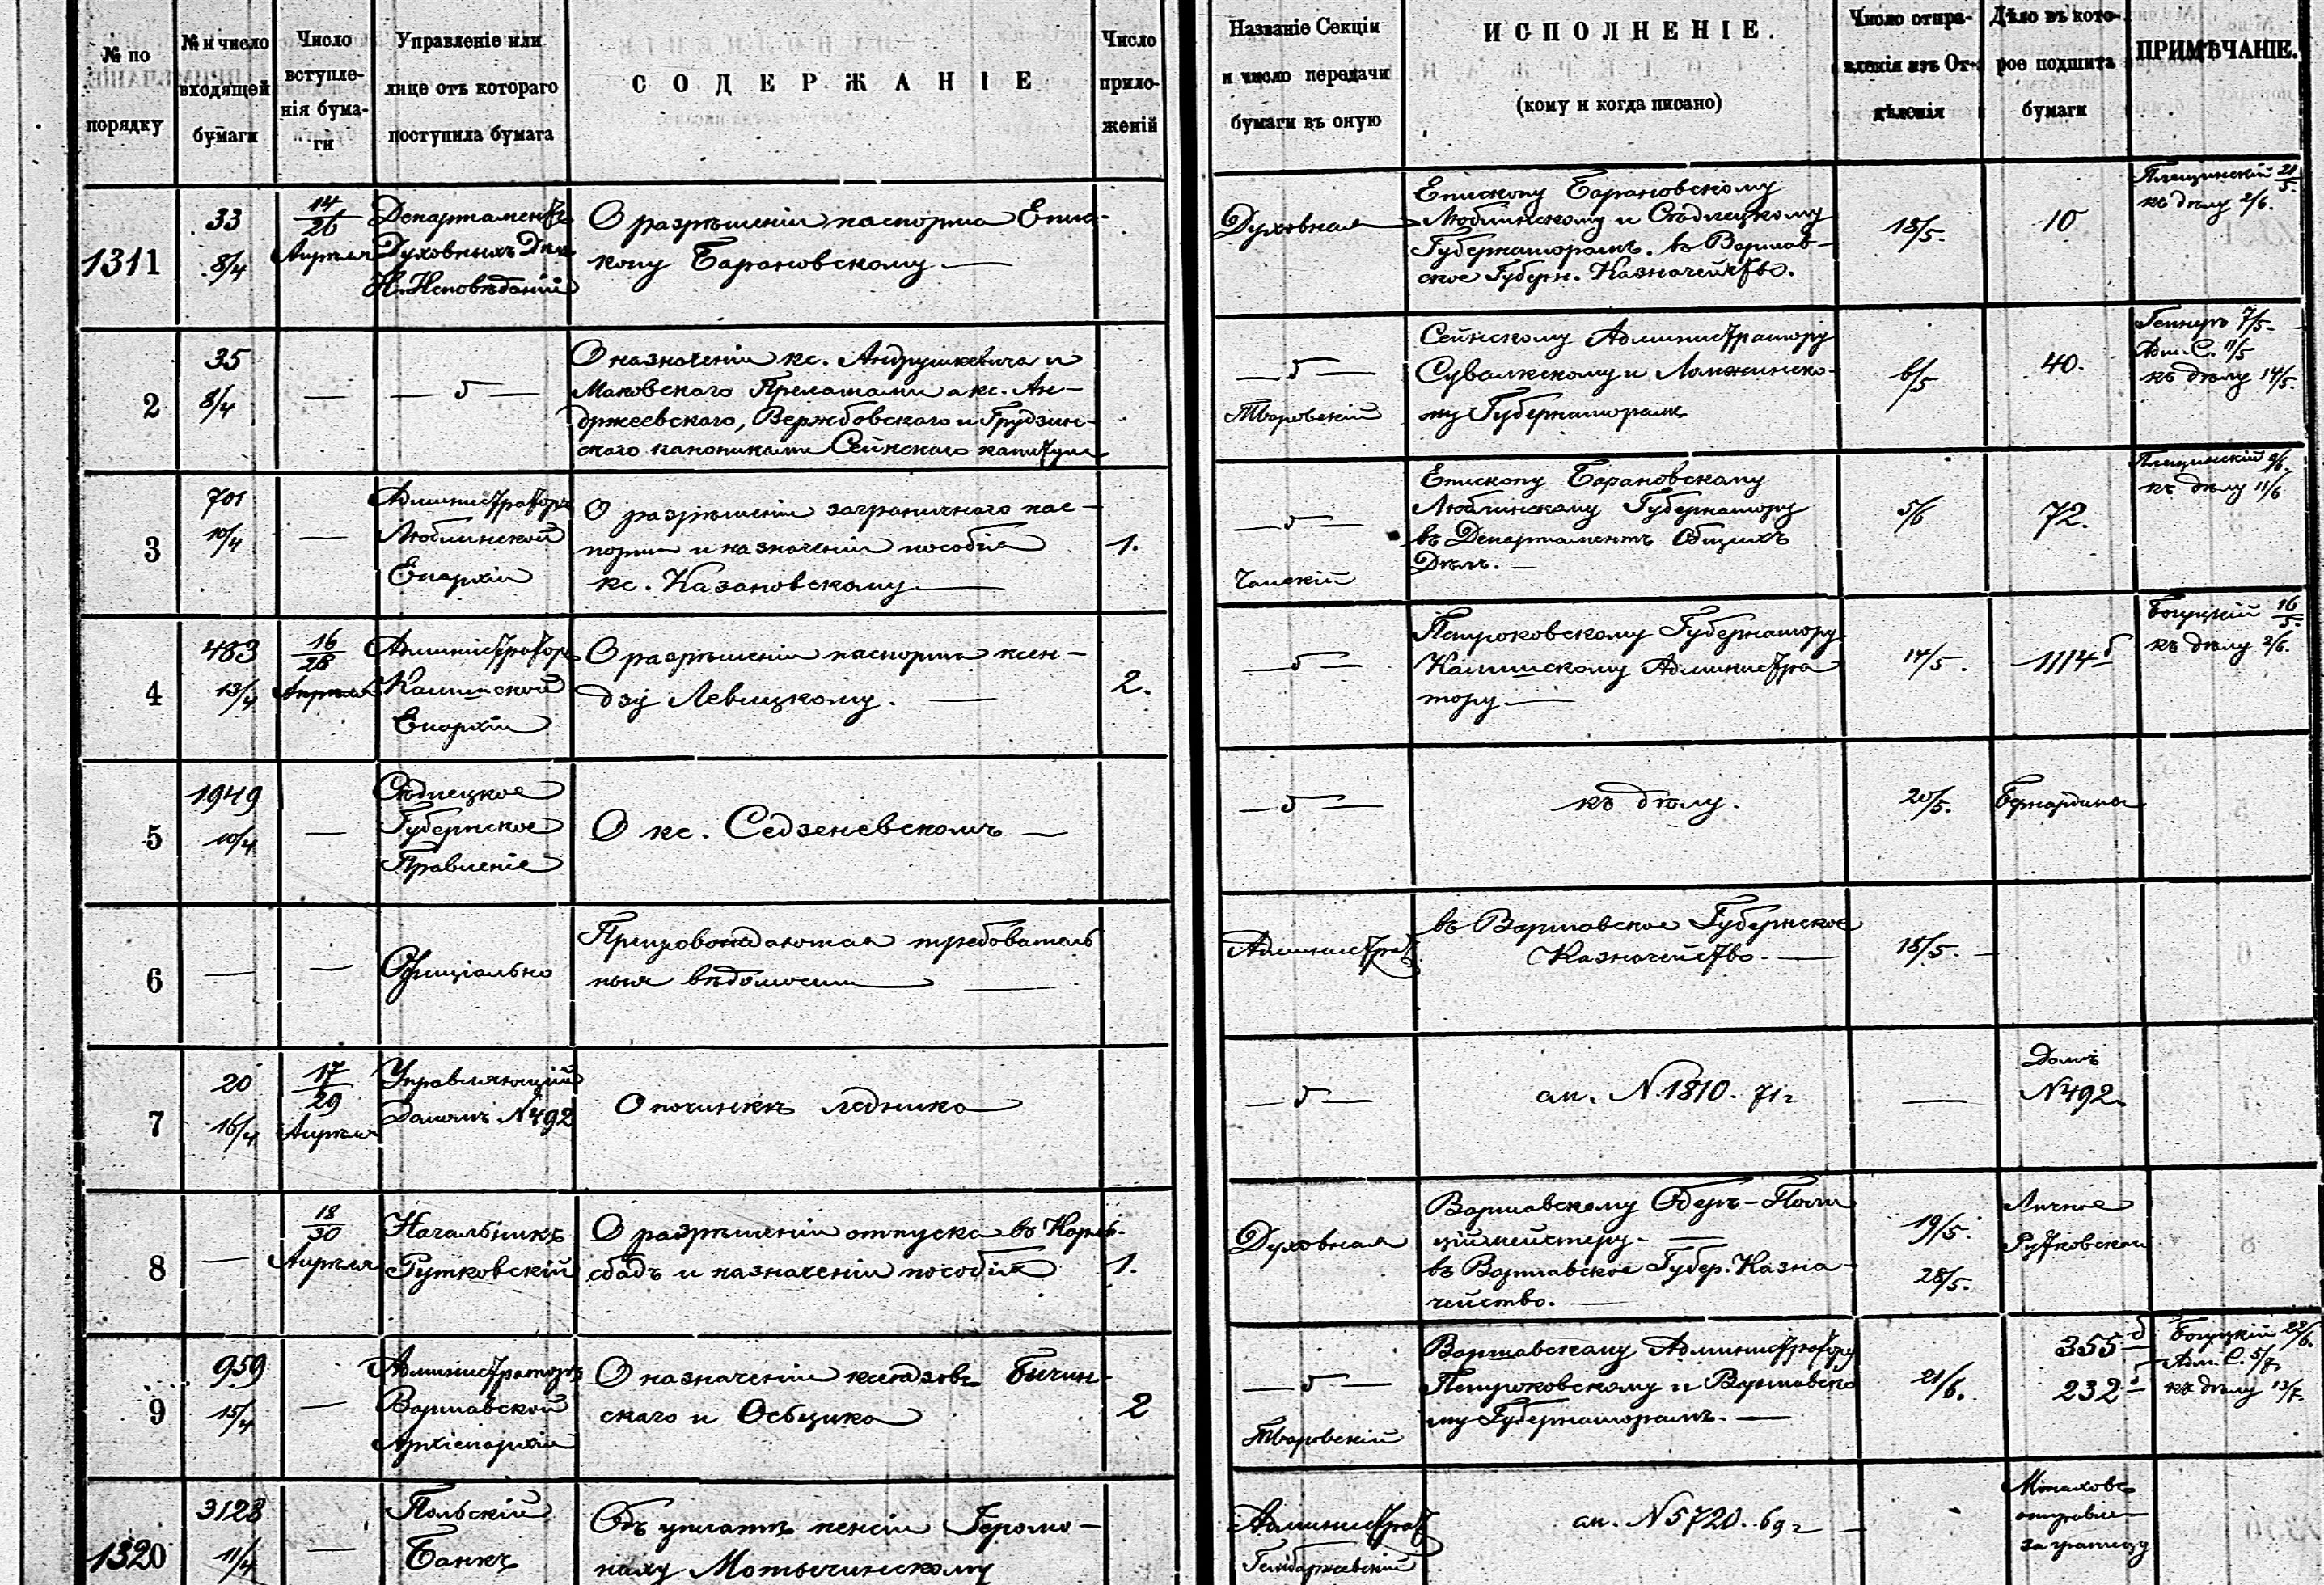 № по порядку
№ и число входящей бумаги
Число вступленія бумаги
Управленіе или лице отъ котораго поступила бумага
СОДЕРЖАНІЕ
Число приложеній
Названіе Секціи и число передачи бумаги въ оную
ИСПОЛНЕНІЕ.
(кому и когда писано)
Число отправленія изъ Отдѣленія
Дѣло въ которое подшита бумаги
ПРИМѢЧАНІЕ.
1311
33
8/4
14/26
Апрѣля
Департаментъ
Духовныхъ Дѣлъ
И. Исповѣданій
О разрѣшеніи паспорта Епис-
копу Барановскому —
Духовная
Епископу Барановскому
Люблинскому и Сѣдлецкому
Губернаторамъ. въ Варшав-
ское Губерн. Казначейство.
18/5.
10
Плещинскій 21/5.
къ дѣлу 2/6.
2
35
8/4
—
— " —
О назначеніи кс. Андрушкевича и
Маковскаго Прелатами а кс. Ан-
држеевскаго, Вержбовскаго и Грудзин-
скаго канониками Сейнскаго капитула
— " —
Тваровскій
Сейнскому Администратору
Сувалкскому и Ломжинско-
му Губернаторамъ
6/5
40.
7/5
Адм. С. 11/5
къ дѣлу 14/5.
3
701
10/4
—
Администраторъ
Люблинской
Епархіи
О разрѣшеніи заграничнаго пас-
порта и назначеніи пособія
кс. Казановскому —
1.
— " —
Епископу Барановскому
Люблинскому Губернатору
въ Департаментъ Общихъ
Дѣлъ. —
5/6
72.
Плещинскій 9/6.
къ дѣлу 11/6
4
483
13/4
16/28
Апрѣля
Администраторъ
Калишской
Епархіи
О разрѣшеніи паспорта ксен-
дзу Левицкому. —
2.
— " —
Петроковскому Губернатору
Калишскому Администра
тору —
14/5.
1114 б
Богуцкій 16/5.
къ дѣлу 2/6.
5
1949
10/4
—
Сѣдлецкое
Губернское
Правленіе
О кс. Седзеневскомъ —
— " —
къ дѣлу.
20/5.
Бернардины
6
—
—
Официально
Препровождаются требователь
ныя вѣдомости —
Администрат.
въ Варшавское Губернское
Казначейство. —
18/5. —
7
20
16/4
17/29
Апрѣля
Управляющій
Домомъ N 492
О починкѣ ледника
— " —
ан. N 1810. 71 г
—
Домъ
N 492.
8
—
18/30
Апрѣля
Начальникъ
Рутковскій
О разрѣшеніи отпуска въ Карль-
сбадъ и назначеніи пособія
1.
Духовная
Варшавскому Оберъ-Поли
ціймейстеру. —
въ Варшавское Губер. Казна-
чейство. —
19/5.
28/5.
Личное
Рутковскаго
9
959
15/4
—
Администраторъ
Варшавской
Архіепархіи
О назначеніи ксендзовъ Бичин-
скаго и Осьцика
2
— " —
Тваровскій
Варшавскому Администратору
Петроковскому и Варшавско
му Губернаторамъ. —
21/6.
355 б
232
Богуцкій 22/6.
Адм. С. 5/7.
къ дѣлу 13/7.
1320
3128
11/4
—
Польскій
Банкъ
Объ уплатѣ пенсіи Іеромо-
наху Мотычинскому
Администрат.
ан. N 5720. 69 г —
Монаховъ
отправл
за границу